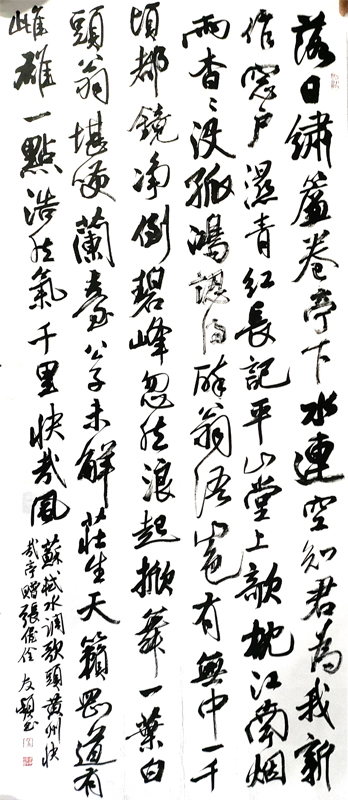 落日繡簾卷亭下水連空知君為我新
作窓户濕青紅長記平山堂上欹枕江南烟
雨杳々沒孤鴻認得醉翁語山色有無中一千
頃都鏡净倒碧峰忽然浪起掀舞一葉白
頭翁堪笑蘭臺公子未解莊生天籟剛道有
雌雄一點浩然氣千里快哉風
蘇軾水調歌頭黄州快
哉亭贈張偓佺